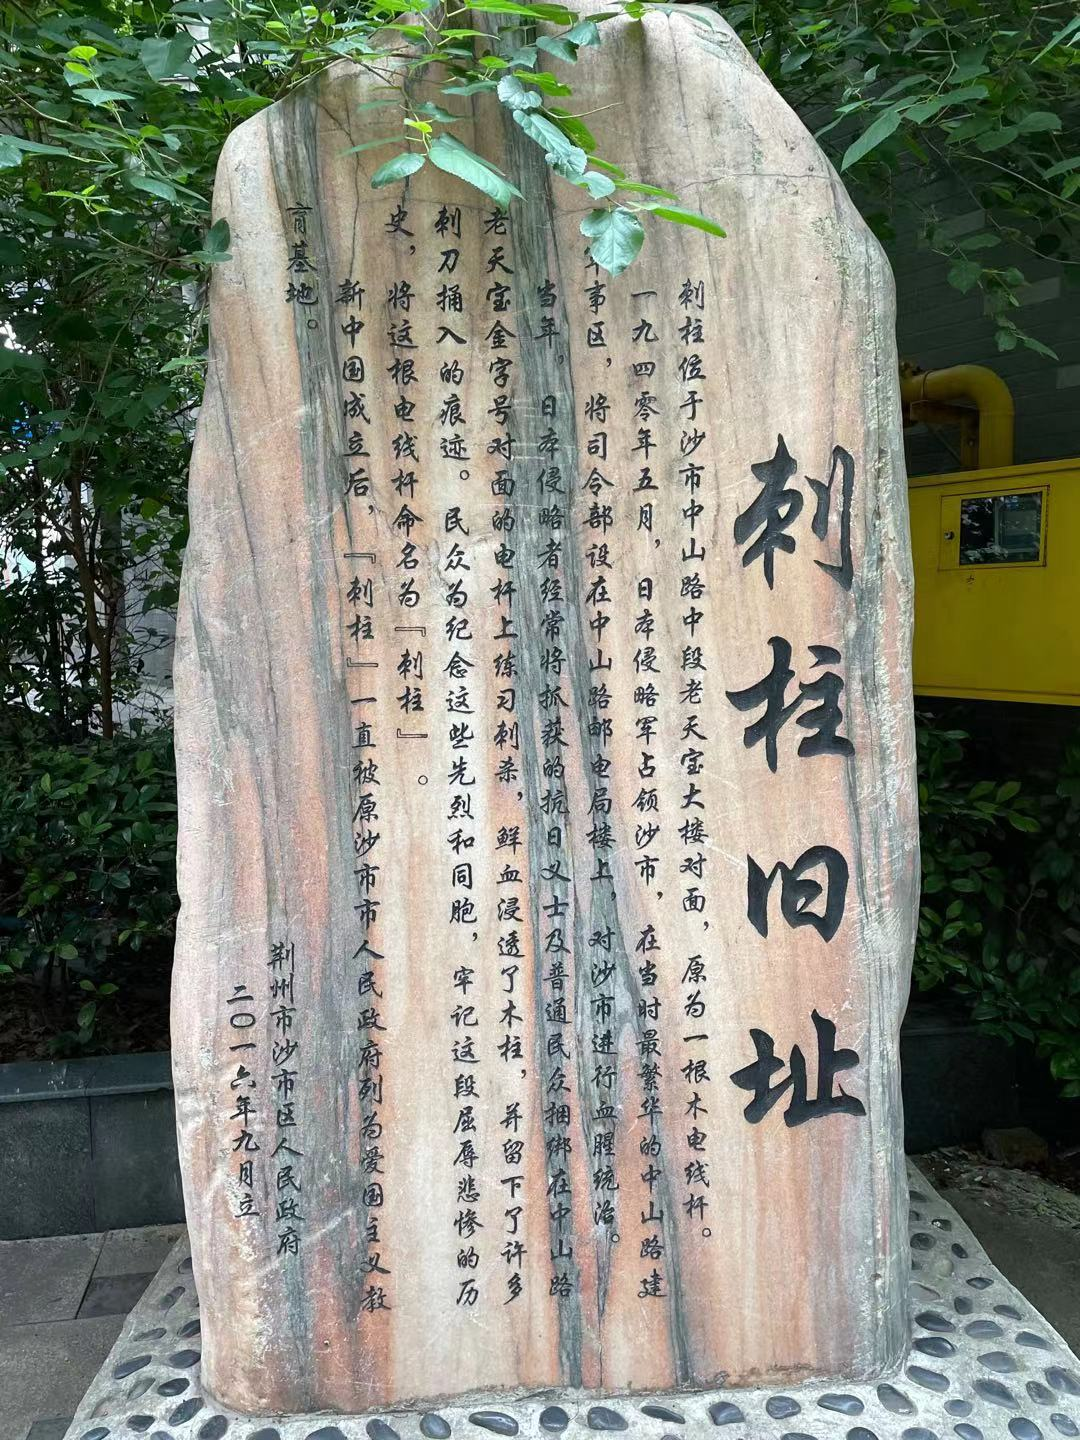 刺柱旧址
刺柱位于沙市中山路中段老天宝大楼对面，原为一根木电线杆。
一九四零年五月，日本侵略军占领沙市，在当时最繁华的中山路建
军事区，将司令部设在中山路邮电局楼上，对沙市进行血腥统治。
当年，日本侵略者经常将抓获的抗日义士及普通民众捆绑在中山路
老天宝金字号对面的电杆上练习刺杀，鲜血浸透了木柱，并留下了许多
刺刀捅入的痕迹。民众为纪念这些先烈和同胞，牢记这段屈辱悲惨的历
史，将这根电线杆命名为『刺柱』。
新中国成立后，『刺柱』一直被原沙市市人民政府列为爱国主义教
育基地。
荆州市沙市区人民政府
二〇一六年九月立